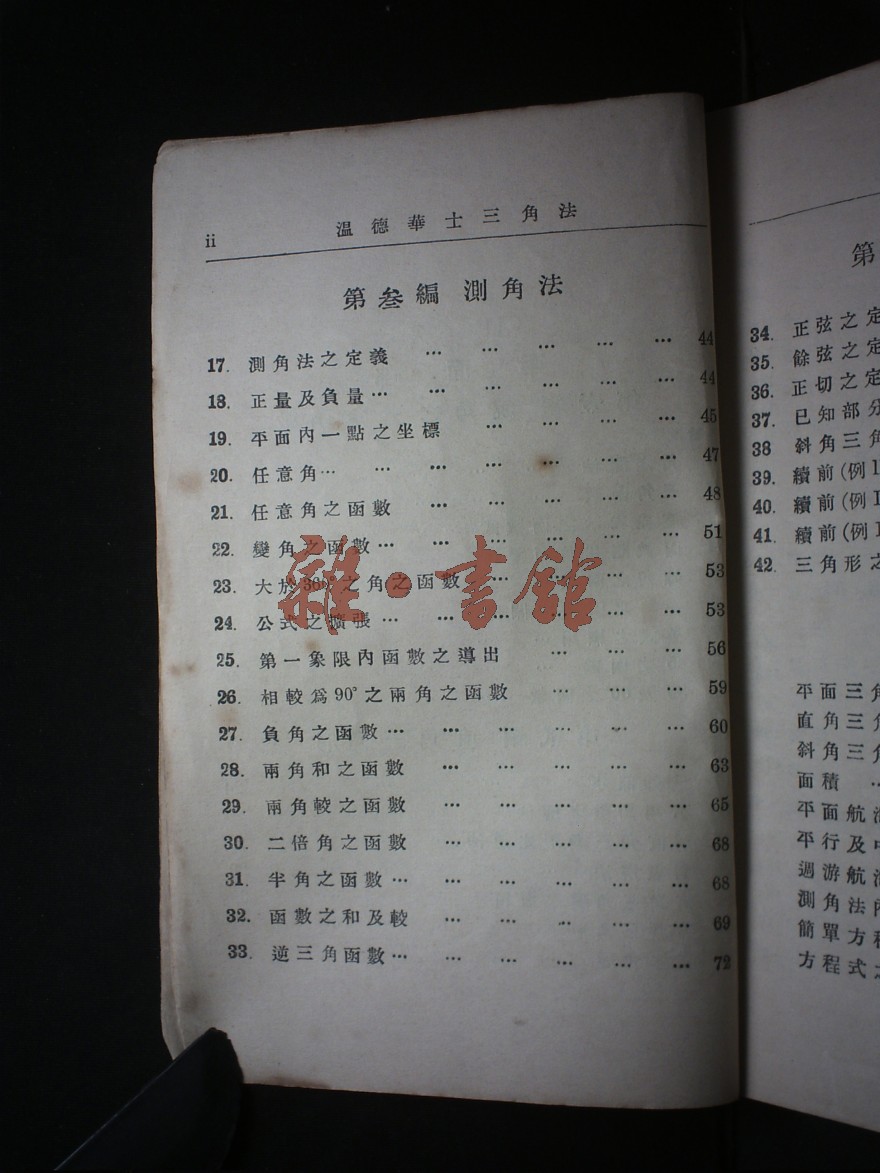 ii
溫德華士三角法
第叁編 測角法
17. 測角法之定義 … … … … … 44
18. 正量及負量… … … … … … 44
19. 平面內一點之坐標 … … … … 45
20. 任意角… … … … … … … 47
21. 任意角之函數 … … … … … 48
22. 變角之函數… … … … … … 51
23. 大於360°之角之函數 … … … … 53
24. 公式之擴張… … … … … … 53
25. 第一象限內函數之導出 … … … 56
26. 相較爲90°之兩角之函數 … … … 59
27. 負角之函數… … … … … … 60
28. 兩角和之函數 … … … … … 63
29. 兩角較之函數 … … … … … 65
30. 二倍角之函數 … … … … … 68
31. 半角之函數… … … … … … 68
32. 函數之和及較 … … … … … 69
33. 逆三角函數… … … … … … 72
雜·書館
第
34. 正弦之定
35. 餘弦之定
36. 正切之定
37. 已知部分
38 斜角三角
39. 續前(例I
40. 續前(例I
41. 續前(例I
42. 三角形之
平面三角
直角三角
斜角三角
面積 …
平面航海
平行及中
週游航海
測角法內
簡單方程
方程式之